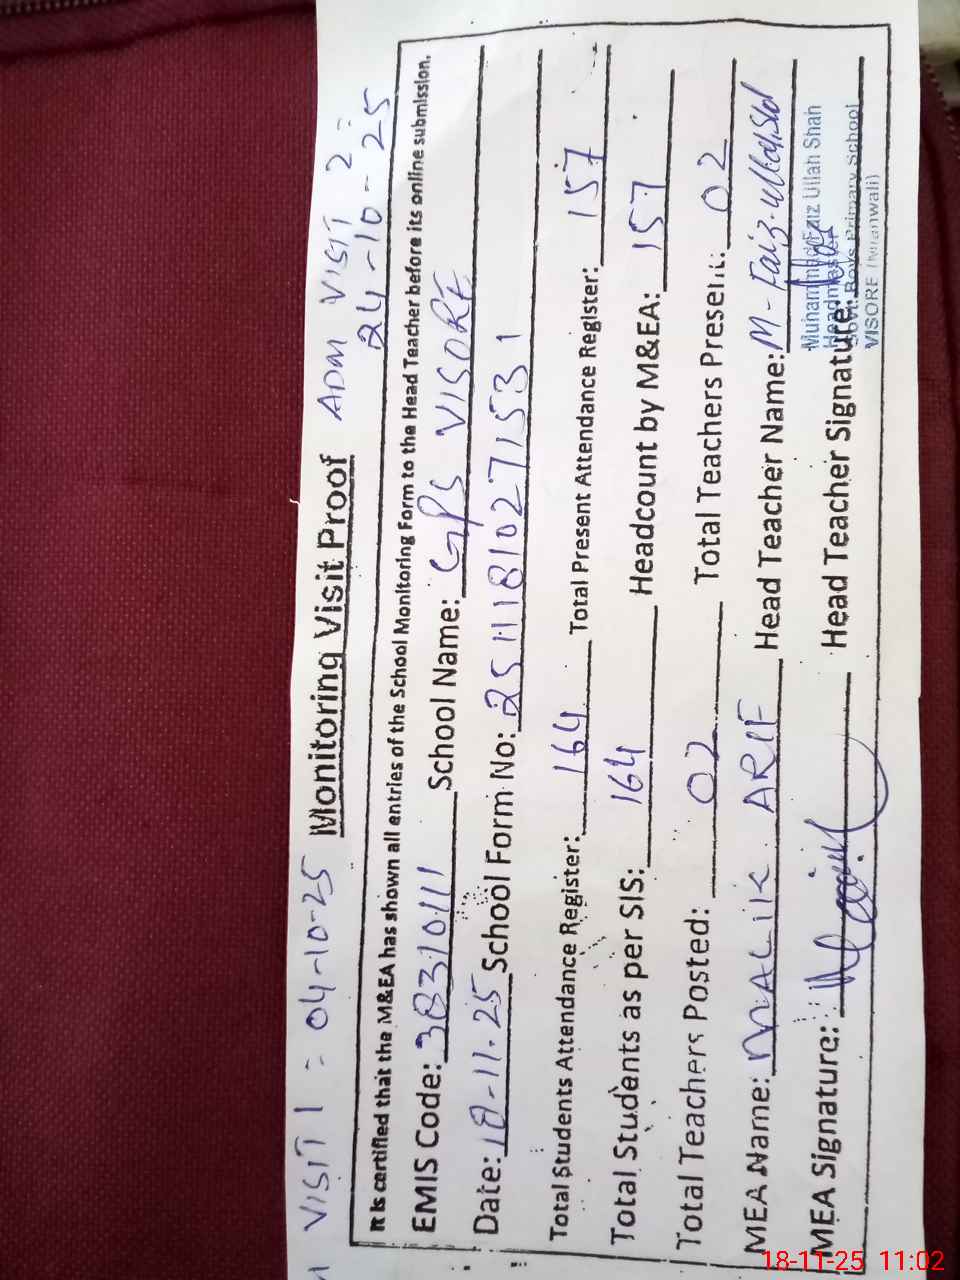 VISIT 1 : 04-10-25 Monitoring Visit Proof ADM VISIT 2 :
24-10-25
It is certified that the M&EA has shown all entries of the School Monitoring Form to the Head Teacher before its online submission.
EMIS Code: 38310111 School Name: GPS VISORE
Date: 18-11-25 School Form No: 25111810271531
Total Students Attendance Register: 164 Total Present Attendance Register: 157
Total Students as per SIS: 164 Headcount by M&EA: 157
Total Teachers Posted: 02 Total Teachers Present: 02
MEA Name: MALIK ARIF Head Teacher Name: M-Faiz-ullah Shah
Muhammad Faiz Ullah Shah
Headmaster
Govt. Boys Primary School
VISORE (Mianwali)
MEA Signature: Head Teacher Signature:
18-11-25 11:02